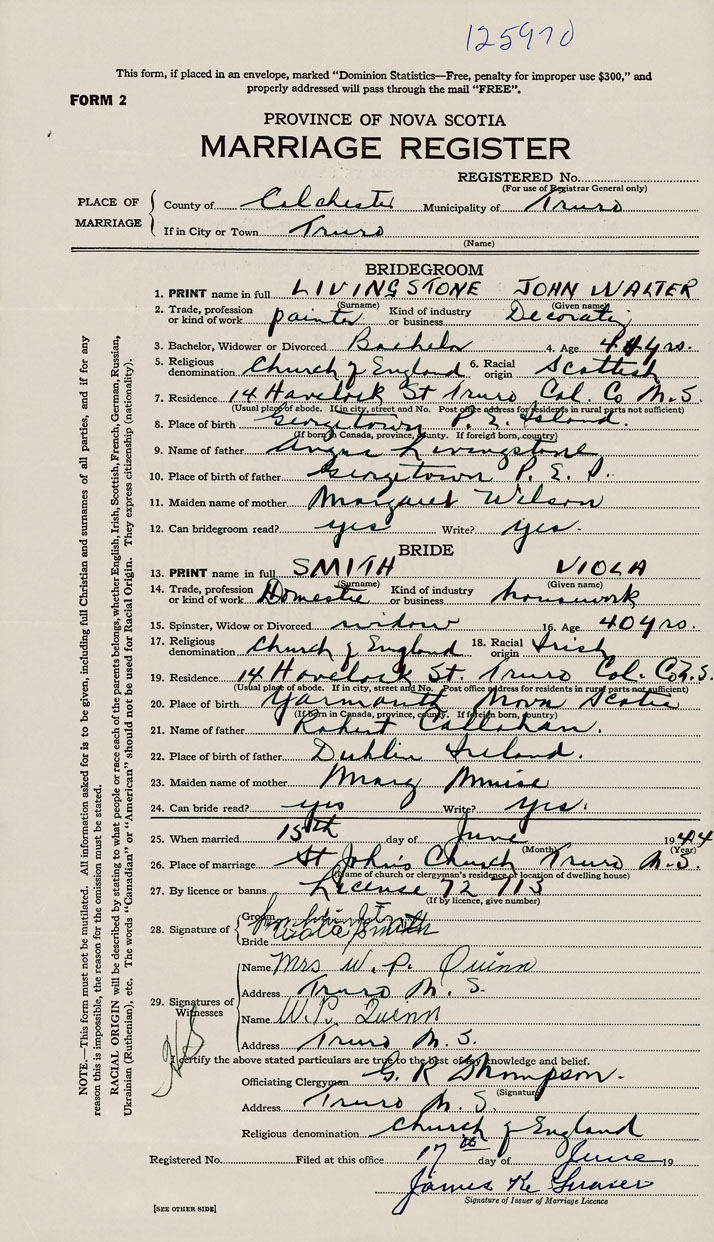 125970
This form, if placed in an envelope, marked "Dominion Statistics—Free, penalty for improper use $300," and
properly addressed will pass through the mail "FREE".
FORM 2
PROVINCE OF NOVA SCOTIA
MARRIAGE REGISTER
REGISTERED No.
(For use of Registrar General only)
PLACE OF MARRIAGE
County of Colchester Municipality of Truro
If in City or Town Truro
(Name)
BRIDEGROOM
1. PRINT name in full LIVINGSTONE JOHN WALTER
(Surname) (Given name)
2. Trade, profession or kind of work painter Kind of industry or business Decorating
3. Bachelor, Widower or Divorced Bachelor 4. Age 44 yrs.
5. Religious denomination Church of England 6. Racial origin Scottish
7. Residence 14 Havelock St Truro Col. Co N.S.
(Usual place of abode. If in city, street and No. Post office address for residents in rural parts not sufficient)
8. Place of birth Georgetown P.E. Island.
(If born in Canada, province, county. If foreign born, country)
9. Name of father Angus Livingstone
10. Place of birth of father Georgetown P.E.I.
11. Maiden name of mother Margaret Wilson
12. Can bridegroom read? yes Write? yes.
BRIDE
13. PRINT name in full SMITH VIOLA
(Surname) (Given name)
14. Trade, profession or kind of work Domestic Kind of industry or business housework
15. Spinster, Widow or Divorced widow 16. Age 40 yrs.
17. Religious denomination Church of England 18. Racial origin Irish
19. Residence 14 Havelock St. Truro Col. Co N.S.
(Usual place of abode. If in city, street and No. Post office address for residents in rural parts not sufficient)
20. Place of birth Yarmouth Nova Scotia
(If born in Canada, province, county. If foreign born, country)
21. Name of father Robert Callahan.
22. Place of birth of father Dublin Ireland.
23. Maiden name of mother Mary Muise
24. Can bride read? yes Write? yes.
25. When married 15th day of June 1944
(Month) (Year)
26. Place of marriage St John's Church Truro N.S.
(Name of church or clergyman's residence or location of dwelling house)
27. By licence or banns License 72 113
(If by licence, give number)
28. Signature of
Groom
Bride Viola Smith
29. Signatures of Witnesses
Name Mrs W. P. Quinn
Address Truro N.S.
Name W.P. Quinn
Address Truro N.S.
I certify the above stated particulars are true to the best of my knowledge and belief.
Officiating Clergyman G. R Thompson.
(Signature)
Address Truro N.S.
Religious denomination Church of England
Registered No. Filed at this office 17th day of June 19
James K. Fraser
Signature of Issuer of Marriage Licence
[SEE OTHER SIDE]
NOTE.—This form must not be mutilated. All information asked for is to be given, including full Christian and surnames of all parties, and if for any
reason this is impossible, the reason for the omission must be stated.
RACIAL ORIGIN will be described by stating to what people or race each of the parents belongs, whether English, Irish, Scottish, French, German, Russian,
Ukrainian (Ruthenian), etc. The words "Canadian" or "American" should not be used for Racial Origin. They express citizenship (nationality).